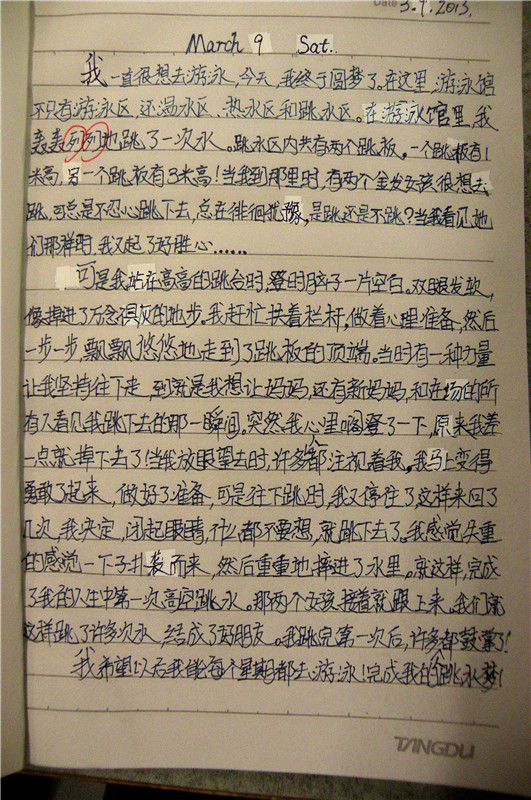 Date 3.9.2013.
March 9 Sat.
我一直很想去游泳,今天,我终于圆梦了。在这里,游泳馆
不只有游泳区,还温水区、热水区和跳水区。在游泳馆里,我
轰轰列列地跳了一次水。跳水区内共有两个跳板。一个跳板有1
米高,另一个跳板有3米高!当我到那里时,有两个金发女孩很想去
跳,可总是不忍心跳下去,总在徘徊犹豫,是跳还是不跳?当我看见她
们那样时,我又起了好胜心……
可是我站在高高的跳台时,登时脑子一片空白。双眼发软,
像掉进了万念俱灰的地步。我赶忙扶着栏杆,做着心理准备,然后
一步一步,飘飘悠悠地走到了跳板的顶端。当时有一种力量
让我坚持往下走,到就是我想让妈妈,还有新妈妈,和在场的所
有人看见我跳下去的那一瞬间。突然,我心里咯登了一下,原来我差
一点就掉下去了!当我放眼望去时,许多人都注视着我。我马上变得
勇敢了起来,做好了准备,可是往下跳时,我又停住了,这样来回了
几次,我决定,闭起眼睛,什么都不要想,就跳下去了。我感觉头重
的感觉一下子扑袭而来,然后重重地摔进了水里。就这样,完成
了我的人生中第一次高空跳水。那两个女孩接着就跟上来。我们就
这样跳了许多次水,结成了好朋友。我跳完第一次后,许多都鼓掌了!
我希望以后我能每个星期都去游泳!完成我的跳水梦!
TANGDU